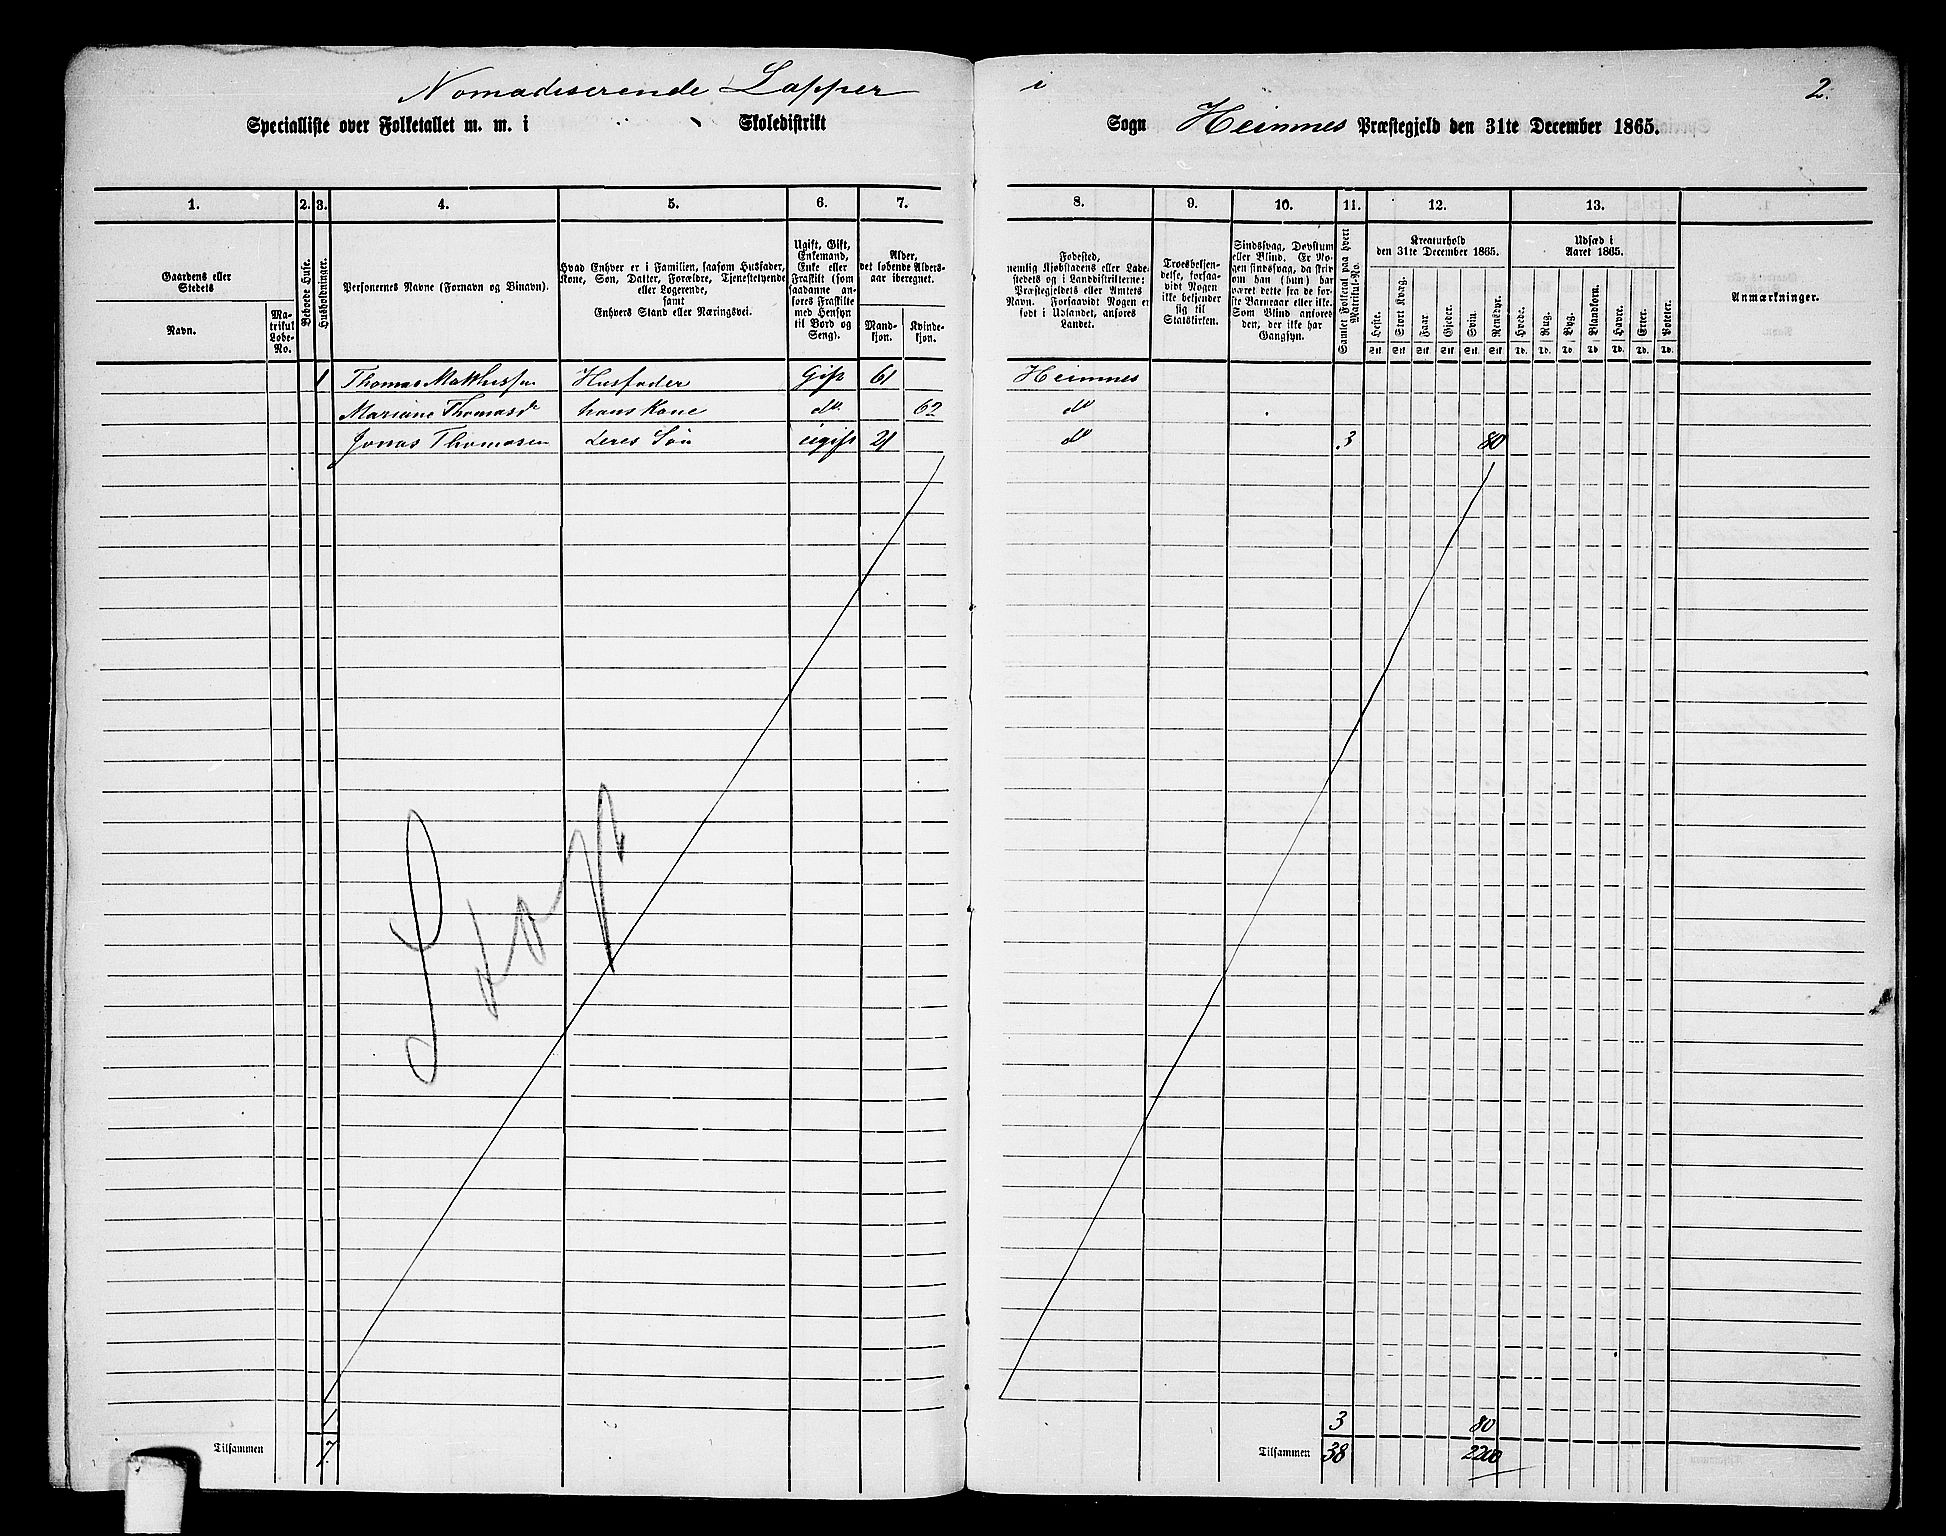 Nomadiserende Lapper i 2.
Specialliste over Folketallet m. m. i Skoledistrikt Sogn Heimnes Præstegjeld den 31te December 1865.
1. 2. 3. 4. 5. 6. 7. 8. 9. 10. 11. 12. 13.
Gaardens eller Stedets
Navn.
Matrikul Løbe-No.
Beboede Huse.
Husholdninger.
Personernes Navne (Fornavn og Binavn).
Hvad Enhver er i Familien, saasom Husfader, Kone, Søn, Datter, Forældre, Tjenestetyende eller Logerende,
samt
Enhvers Stand eller Næringsvei.
Ugift, Gift, Enkemand, Enke eller Fraskilt (som saadanne anføres Fraskilte med Hensyn til Bord og Seng).
Alder, det løbende Alders-aar iberegnet.
Mand-kjøn.
Kvinde-kjøn.
Fødested, nemlig Kjøbstadens eller Ladestedets og i Landdistrikterne: Præstegjeldets eller Amtets Navn. Forsaavidt Nogen er født i Udlandet, anføres Landet.
Troesbekjendelse, forsaavidt Nogen ikke bekjender sig til Statskirken.
Sindssvag, Døvstum eller Blind. Er Nogen sindssvag, da skrives om han (hun) har været dette fra de første Barneaar eller ikke. Som Blind anføres den, der ikke har Gangsyn.
Samlet Folketal paa hvert Matrikul-No.
Kreaturhold
den 31te December 1865.
Heste. Stort Kvæg. Faar Gjeder. Svin. Rensdyr.
Stk Stk Stk Stk Stk Stk
Udsæd i
Aaret 1865.
Hvede. Rug. Byg. Blandkorn. Havre. Erter. Poteter.
Td. Td. Td. Td Td. Td. Td.
Anmærkninger.
1 Thomas Mathisen Husfader Gift 61 Heimnes
Mariane Thomasd hans Kone do 62 do
Jonas Thomasen deres Søn ugift 21 do 3 80
Lap
1 3 80
Tilsammen 7 Tilsammen 38 2200